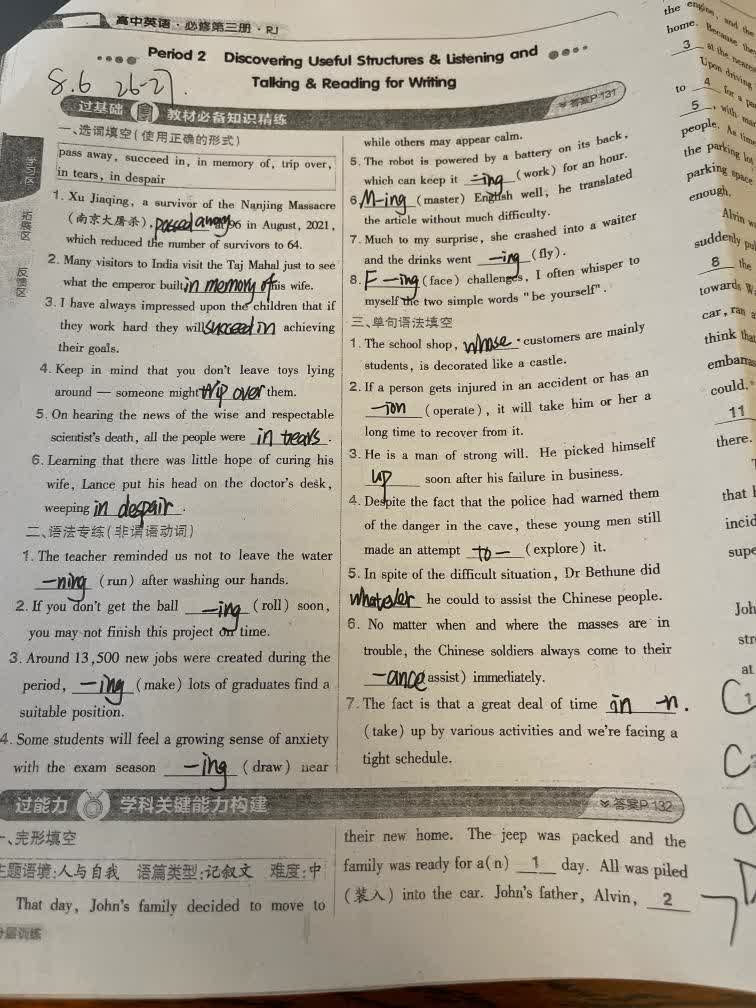 高中英语·必修第三册·RJ
Period 2 Discovering Useful Structures & Listening and
Talking & Reading for Writing
8.6 26-27.
过基础 教材必备知识精练
答案P131
学习区
拓展区
反馈区
一、选词填空(使用正确的形式)
pass away, succeed in, in memory of, trip over,
in tears, in despair
1. Xu Jiaqing, a survivor of the Nanjing Massacre
(南京大屠杀), passed away 96 in August, 2021,
which reduced the number of survivors to 64.
2. Many visitors to India visit the Taj Mahal just to see
what the emperor built in memory of his wife.
3. I have always impressed upon the children that if
they work hard they will succeed in achieving
their goals.
4. Keep in mind that you don't leave toys lying
around — someone might trip over them.
5. On hearing the news of the wise and respectable
scientist's death, all the people were in tears.
6. Learning that there was little hope of curing his
wife, Lance put his head on the doctor's desk,
weeping in despair.
二、语法专练(非谓语动词)
1. The teacher reminded us not to leave the water
-ning (run) after washing our hands.
2. If you don't get the ball -ing (roll) soon,
you may not finish this project on time.
3. Around 13,500 new jobs were created during the
period, -ing (make) lots of graduates find a
suitable position.
4. Some students will feel a growing sense of anxiety
with the exam season -ing (draw) near
while others may appear calm.
5. The robot is powered by a battery on its back,
which can keep it -ing (work) for an hour.
6. M-ing (master) English well, he translated
the article without much difficulty.
7. Much to my surprise, she crashed into a waiter
and the drinks went -ing (fly).
8. F-ing (face) challenges, I often whisper to
myself the two simple words "be yourself".
三、单句语法填空
1. The school shop, whose customers are mainly
students, is decorated like a castle.
2. If a person gets injured in an accident or has an
-ion (operate), it will take him or her a
long time to recover from it.
3. He is a man of strong will. He picked himself
up soon after his failure in business.
4. Despite the fact that the police had warned them
of the danger in the cave, these young men still
made an attempt to - (explore) it.
5. In spite of the difficult situation, Dr Bethune did
whatever he could to assist the Chinese people.
6. No matter when and where the masses are in
trouble, the Chinese soldiers always come to their
-ance (assist) immediately.
7. The fact is that a great deal of time -n.
(take) up by various activities and we're facing a
tight schedule.
过能力 学科关键能力构建
答案P132
一、完形填空
主题语境:人与自我 语篇类型:记叙文 难度:中
That day, John's family decided to move to
their new home. The jeep was packed and the
family was ready for a(n) 1 day. All was piled
(装入) into the car. John's father, Alvin, 2
分层训练
the engine, and the
home. Because the
3 at the neares
Upon driving
to 4 for a pa
5, with mar
people. As time
the parking lot
parking space
enough.
Alvin w
suddenly pul
8 the
towards W
car, ran a
think tha
embarras
could."
11
there.
that h
incid
supe
Joh
str
at
1
C
C